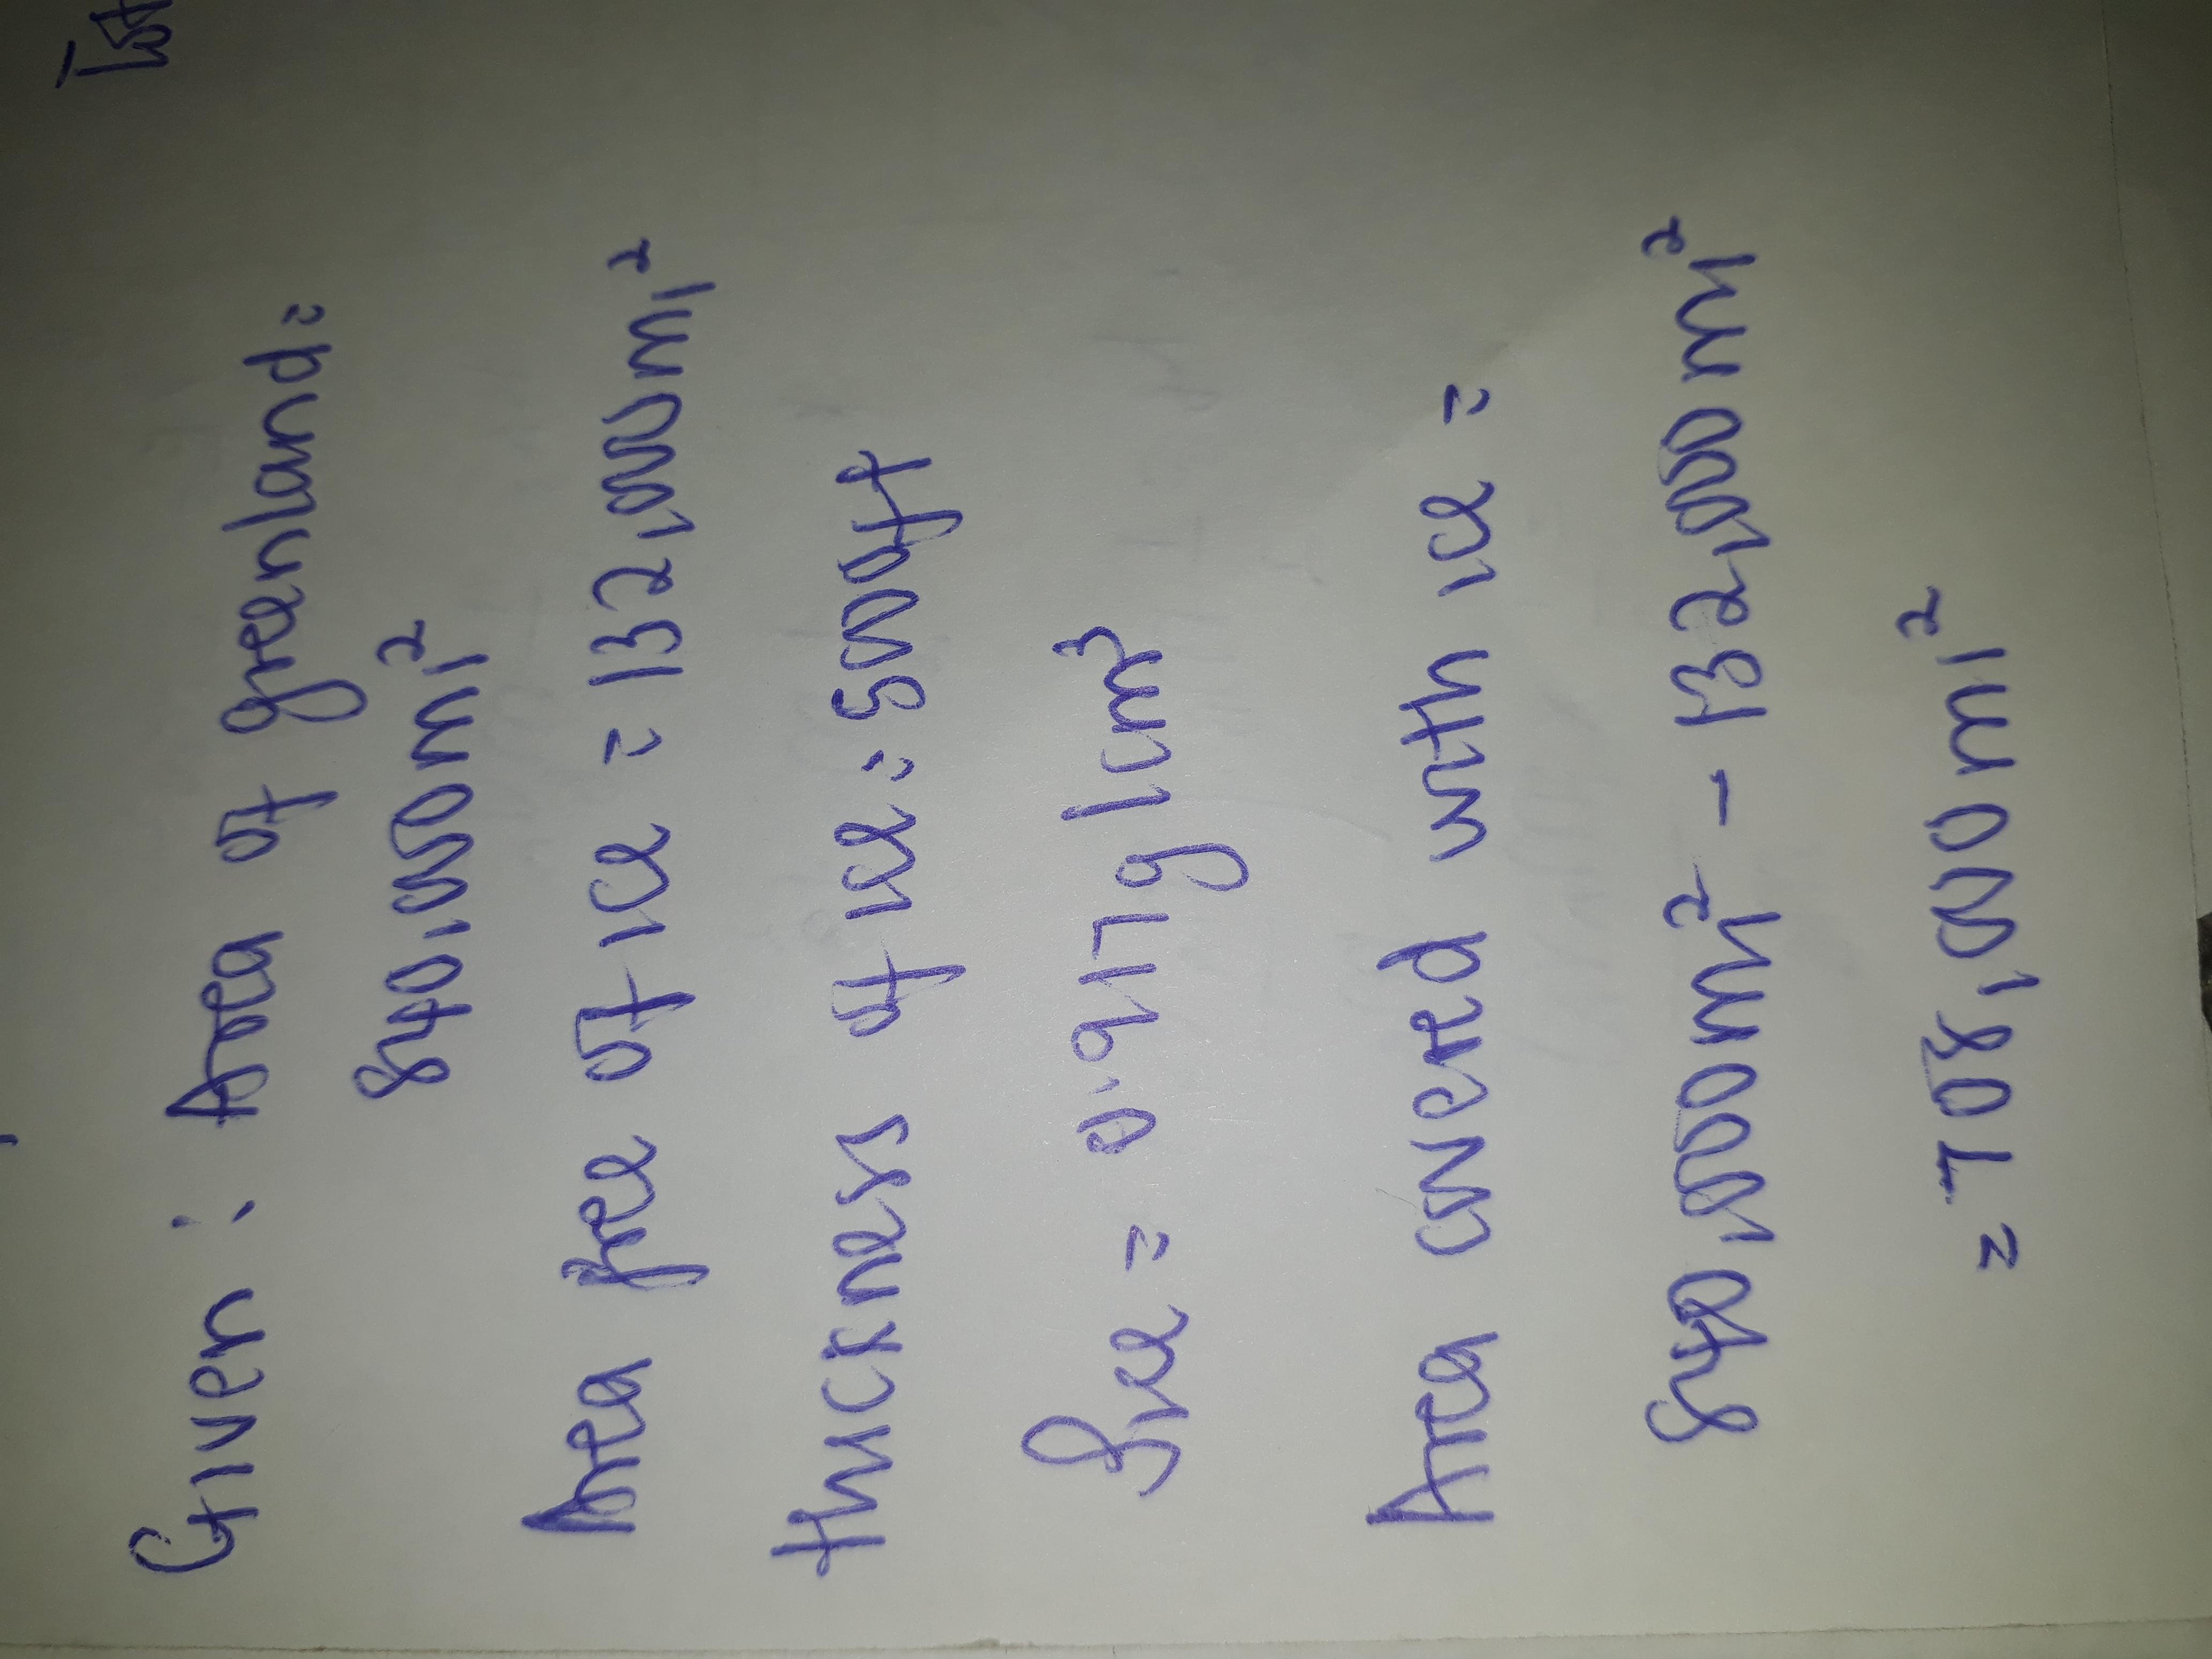 Given : Area of greenland =
840,000 mi²
Area free of ice = 132,000 mi²
thickness of ice = 5000ft
ρice = 0.917 g/cm³
Area covered with ice =
840,000 mi² - 132,000 mi²
= 708,000 mi²